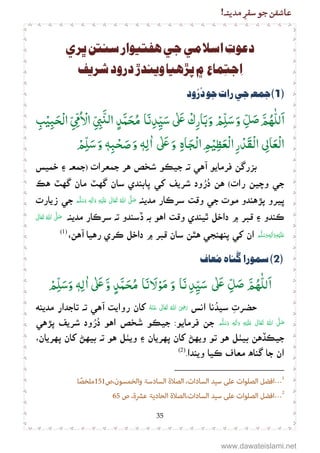 عاشقن جو سفرِ مدينہ!
دعوتِ اسلامي جي هفتيوار سنتن ڀري
اجتماع ۾ پڙهيا ويندڙ درود شريف
(1) جمعہ جي رات جو دُرُود
اَللّٰهُمَّ صَلِّ وَسَلِّمْ وَبَارِكْ عَلٰى سَيِّدِنَا مُحَمَّدِ النَّبِيِّ الْاُمِّيِّ الْحَبِيْبِ
الْعَالِى الْقَدْرِ الْعَظِيْمِ الْجَاهِ وَعَلٰى اٰلِهٖ وَصَحْبِهٖ وَسَلِّمْ
بزرگن فرمايو آهي تہ جيڪو شخص هر جمعرات (جمعہ ۽ خميس
جي وچين رات) هن دُرُود شريف کي پابندي سان گهٽ مان گهٽ هڪ
ڀيرو پڙهندو موت جي وقت سرڪار مدينہ صَلَّى اللهُ تَعَالٰى عَلَيْهِ وَاٰلِهٖ وَسَلَّم جي زيارت
ڪندو ۽ قبر ۾ داخل ٿيندي وقت اهو بہ ڏسندو تہ سرڪار مدينہ صَلَّى اللهُ تَعَالٰى
عَلَيْهِ وَاٰلِهٖ وَسَلَّم ان کي پنهنجي هٿن سان قبر ۾ داخل ڪري رهيا آهن، (1)
(2) سمورا گناه معاف
اَللّٰهُمَّ صَلِّ عَلٰى سَيِّدِنَا وَمَوْلَانَا مُحَمَّدٍ وَّعَلٰى اٰلِهٖ وَسَلِّمْ
حضرتِ سيدُنا انس رَضِىَ اللهُ تَعَالٰى عَنْهُ کان روايت آهي تہ تاجدار مدينه
صَلَّى اللهُ تَعَالٰى عَلَيْهِ وَاٰلِهٖ وَسَلَّم جن فرمايو: جيڪو شخص اهو دُرُود شريف پڙهي
جيڪڏهن بيٺل هو تو ويهڻ کان پهريان ۽ ويٺل هو تہ بيهڻ کان پهريان،
ان جا گناه معاف ڪيا ويندا (2)
1…افضل الصلوات على سيد السادات، الصلاة السادسة والخمسون،ص151ملخصًا
2…افضل الصلوات على سيد السادات،الصلاة الحادية عشرة، ص 65
35
www.dawateislami.net